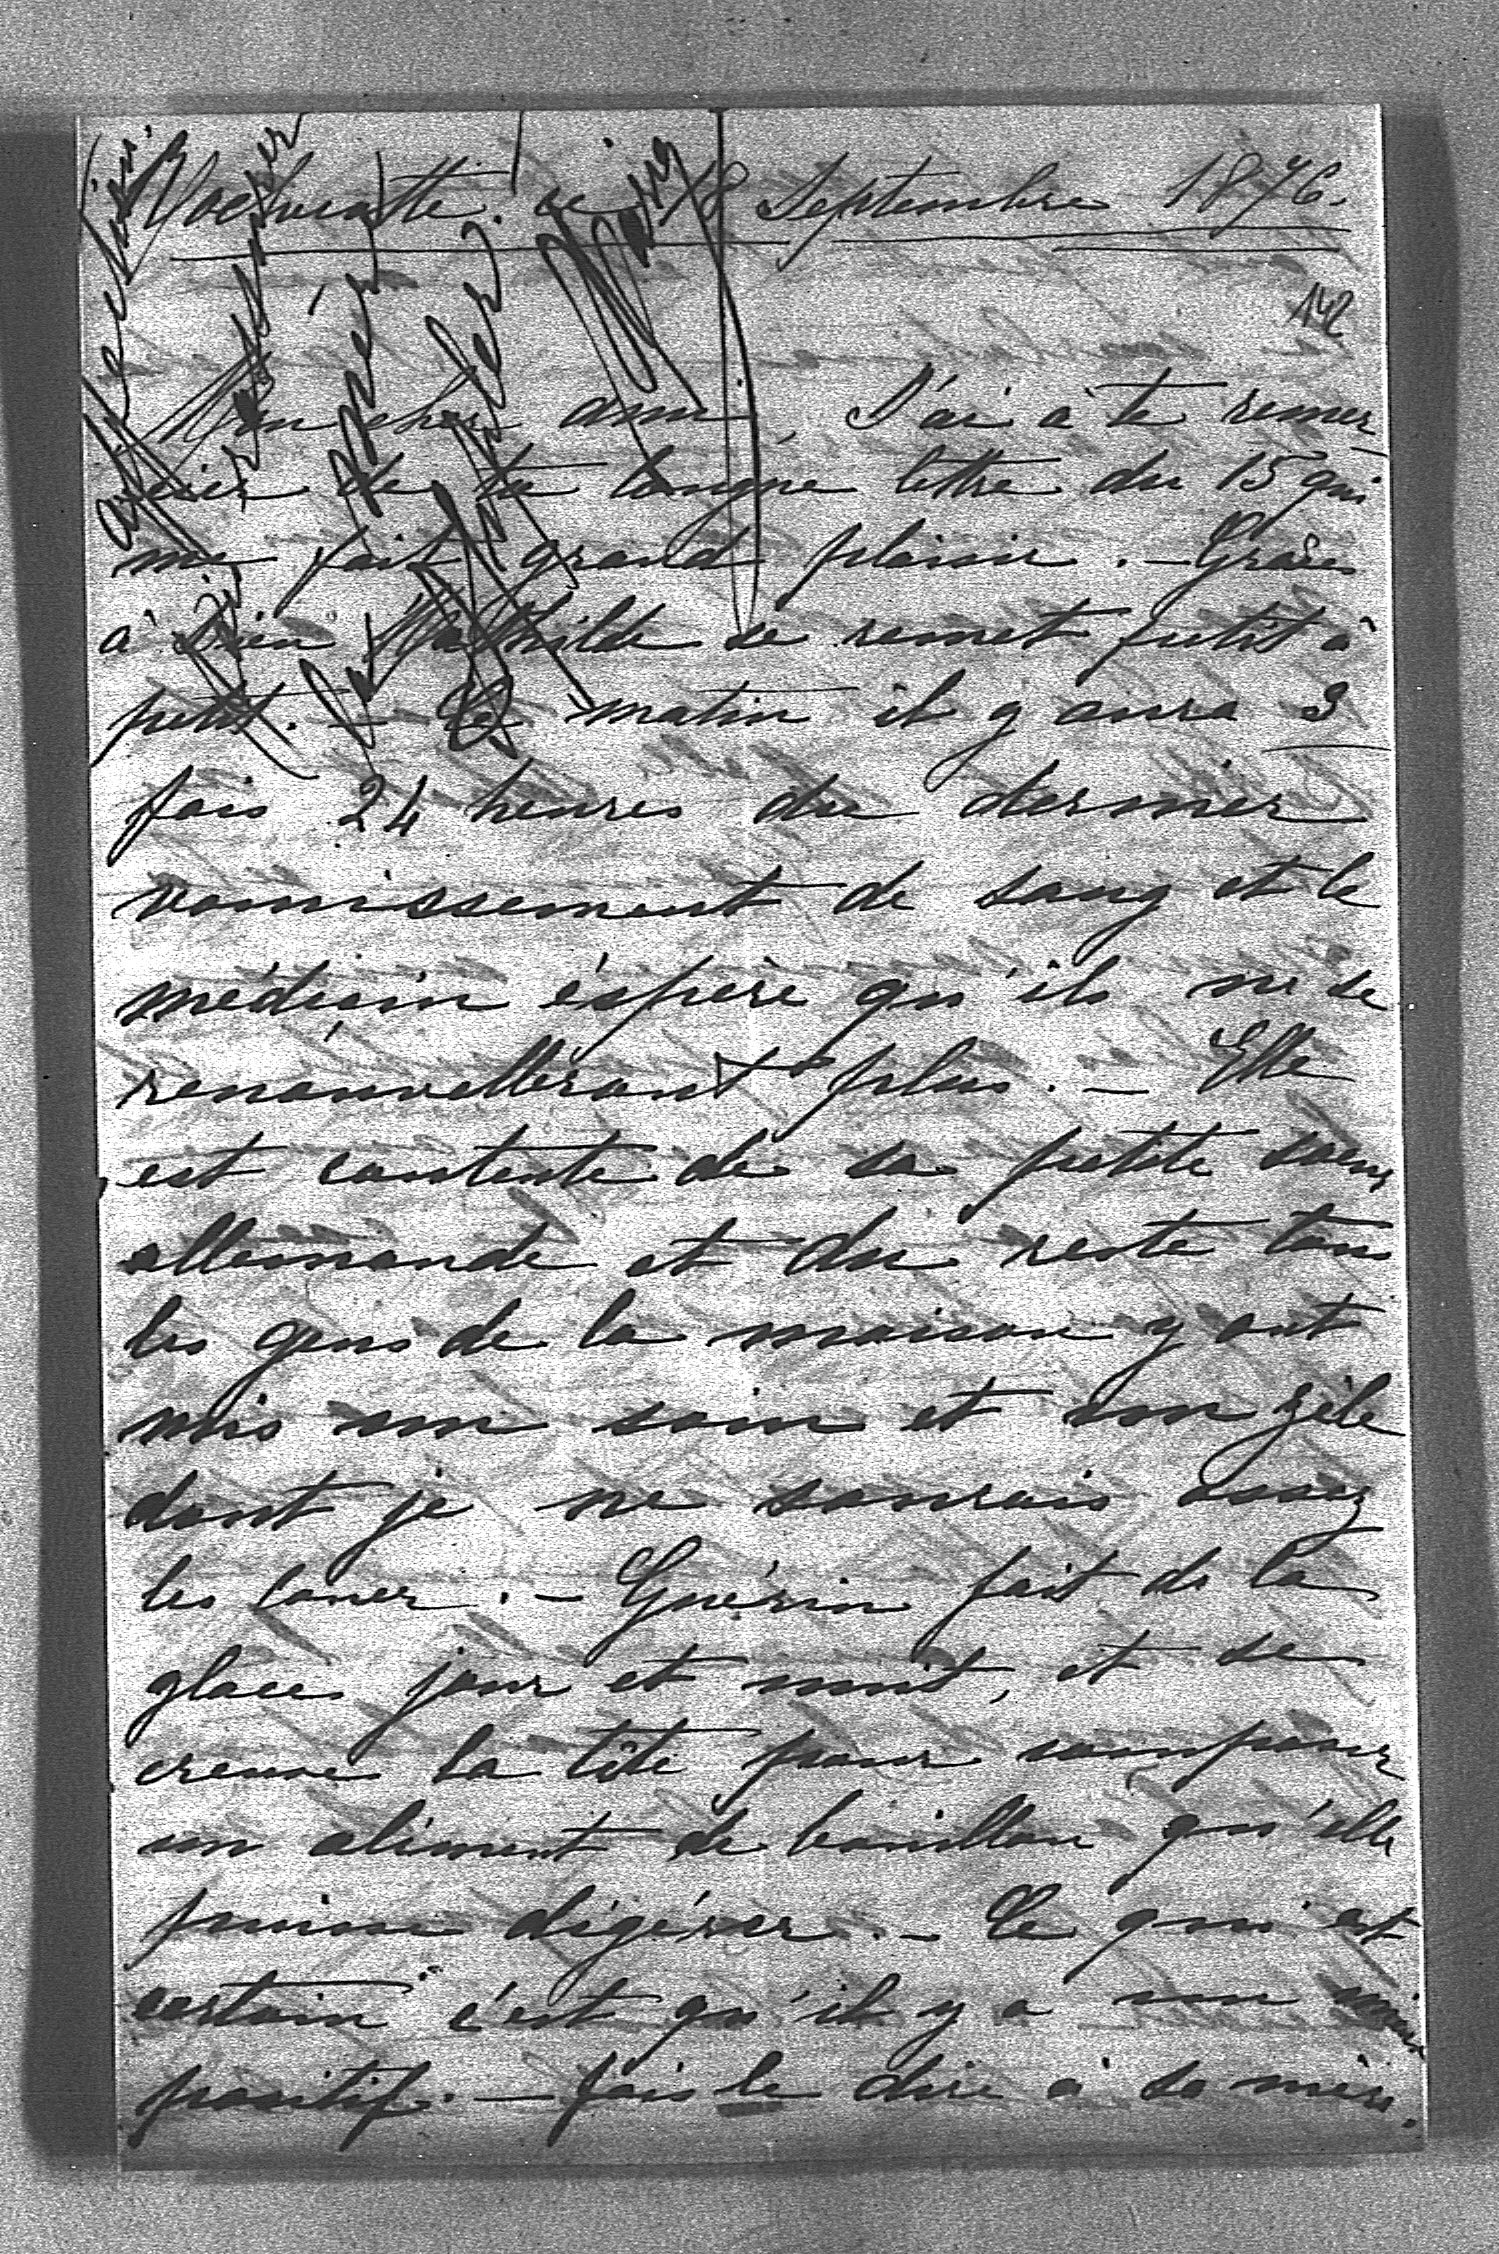 ce 18 Septembre 1876.
142
Mon cher ami, J'ai à te remer
cier de ta longue lettre du 15 qui
me fait grand plaisir. – Grâces
à Dieu Mathilde se remet petit à
petit. – Ce matin il y aura 3
fois 24 heures du dernier
vomissement de sang et le
médecin éspère qu'ils ne se
renouvelleront plus. – Elle
est contente de sa petite soeur
allemande et du reste tous
les gens de la maison y ont
mis un soin et un zèle
dont je ne saurais assez
les louer. – Guérin fait de la
glace jour et nuit, et se
creuse la tête pour
un aliment de bouillon qu'elle
puisse digérer. – Ce qui est
certain c'est qu'il y a un mieux
positif. – fais le dire à sa mère.